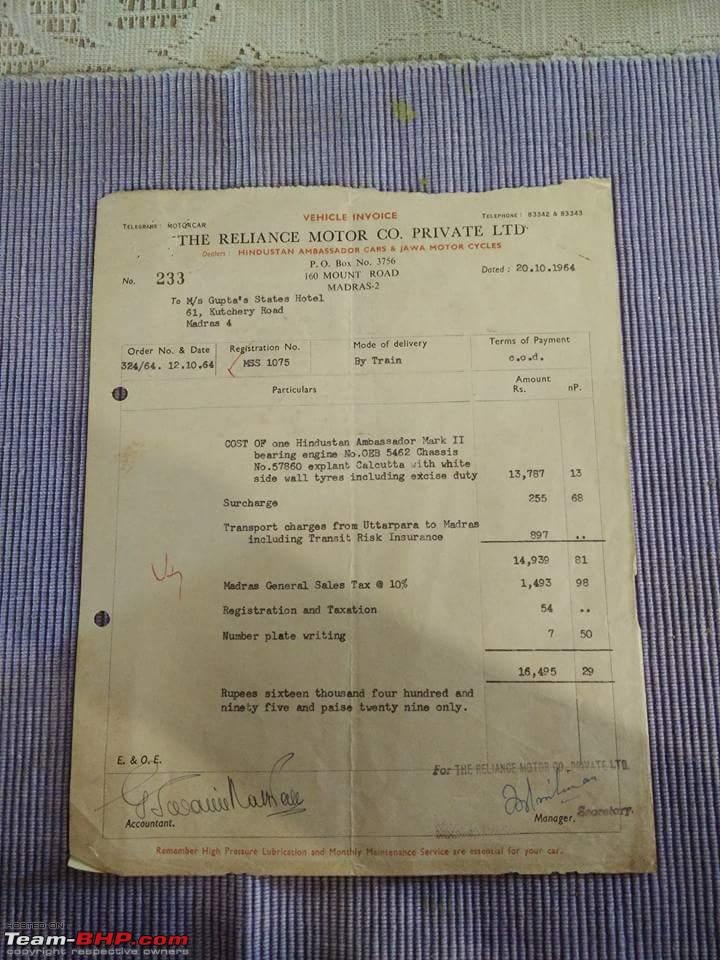 VEHICLE INVOICE
TELEGRAMS : MOTORCAR
TELEPHONE : 83342 & 83343
THE RELIANCE MOTOR CO. PRIVATE LTD
Dealers : HINDUSTAN AMBASSADOR CARS & JAWA MOTOR CYCLES
P. O. Box No. 3756
160 MOUNT ROAD
MADRAS-2
No. 233
Dated : 20.10.1964
To M/s Gupta's States Hotel
61, Kutchery Road
Madras 4
Order No. & Date Registration No. Mode of delivery Terms of Payment
324/64. 12.10.64 MSS 1075 By Train c.o.d.
Particulars Amount
Rs. nP.
COST OF one Hindustan Ambassador Mark II
bearing engine No.OEB 5462 Chassis
No.57860 explant Calcutta with white
side wall tyres including excise duty 13,787 13
Surcharge 255 68
Transport charges from Uttarpara to Madras
including Transit Risk Insurance 897 ..
14,939 81
Madras General Sales Tax @ 10% 1,493 98
Registration and Taxation 54 ..
Number plate writing 7 50
16,495 29
Rupees sixteen thousand four hundred and
ninety five and paise twenty nine only.
E. & O.E.
For THE RELIANCE MOTOR CO. PRIVATE LTD.
Accountant.
Manager. Secretary.
Remember High Pressure Lubrication and Monthly Maintenance Service are essential for your car.
HOSTED ON
Team-BHP.com
copyright respective owners